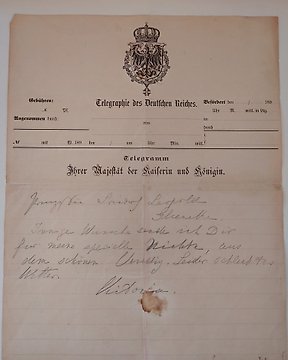 Telegraphie des Deutschen Reiches.
Gebühren:
Befördert den
/
189
M.
Uhr
M.
mitt. in Ltg.
Angenommen durch
von
an
durch
№
mit
W. 189
den
/
um
Uhr
Min.
mitt.
Telegramm
Ihrer Majestät der Kaiserin und Königin.
Leopold
Innige Wünsche sende ich Dir
für meine specielle Nichte, aus
dem schönen Venedig. Leider schlechtes
Wetter.
Victoria.